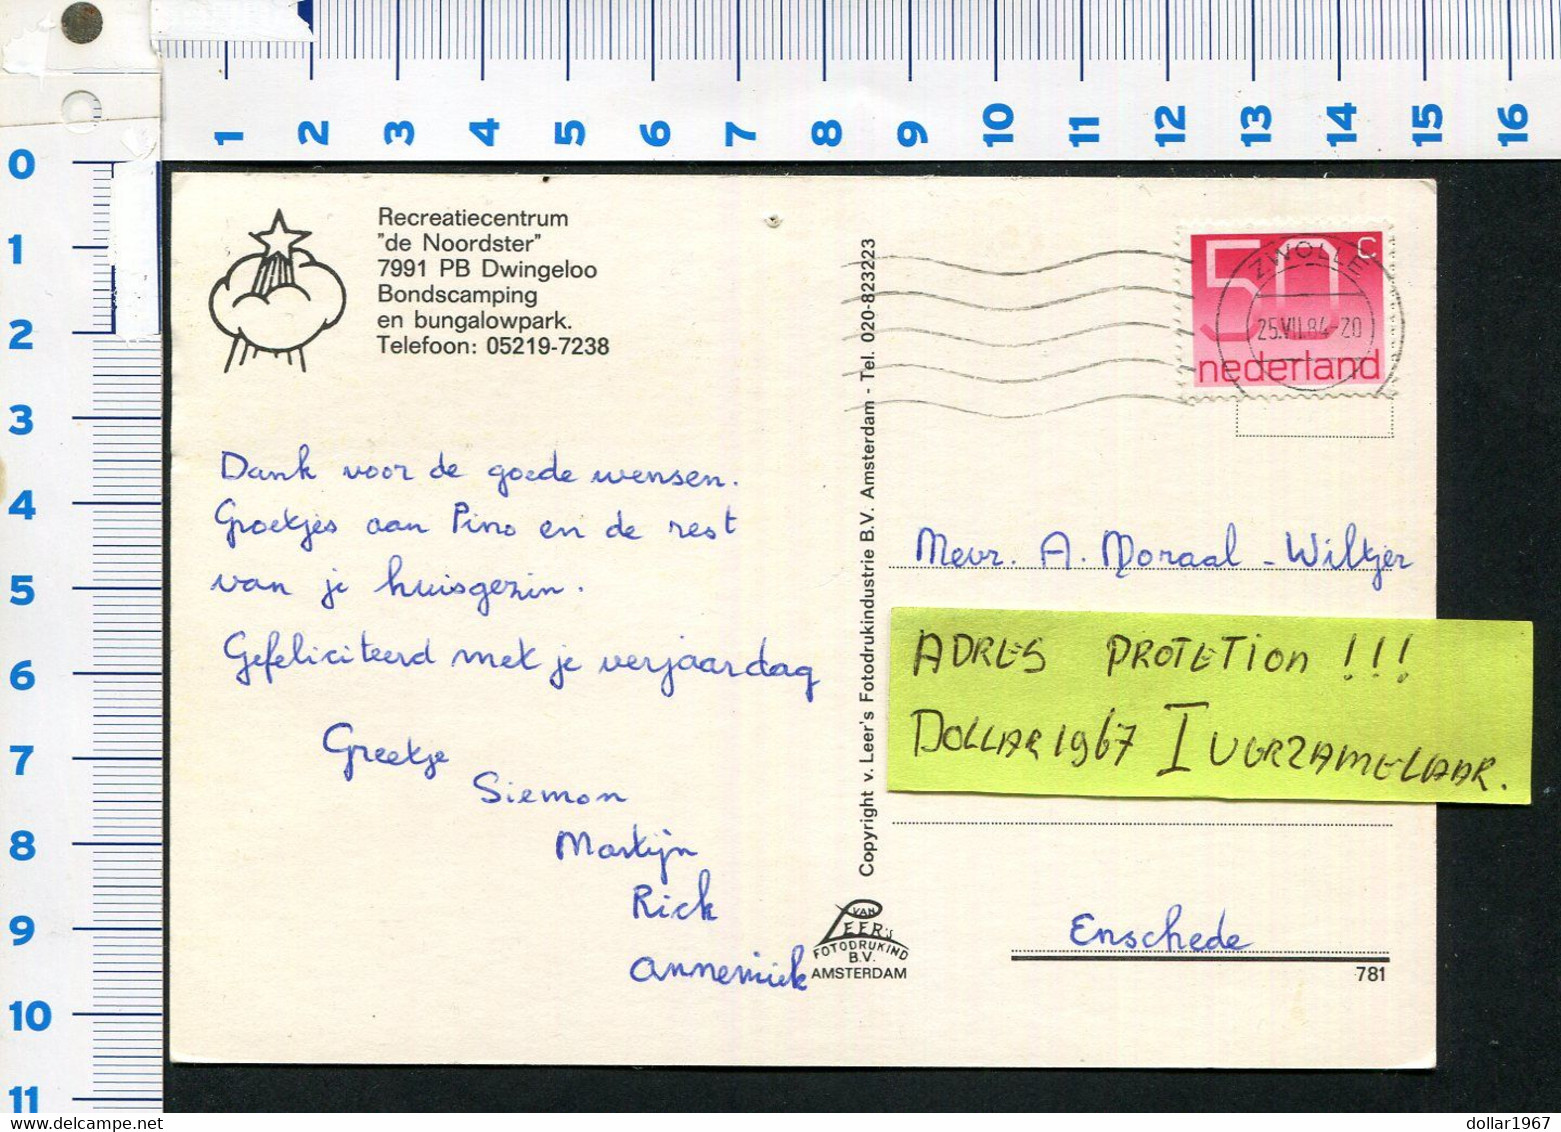 1 2 3 4 5 6 7 8 9 10 11 12 13 14 15 16
0
1
2
3
4
5
6
7
8
9
10
11
Recreatiecentrum
"de Noordster"
7991 PB Dwingeloo
Bondscamping
en bungalowpark.
Telefoon: 05219-7238
Dank voor de goede wensen.
Groetjes aan Pino en de rest
van je huisgezin.
Gefeliciteerd met je verjaardag
Greetje
Siemon
Martijn
Rick
Annemiek
Copyright v. Leer's Fotodrukindustrie B.V. Amsterdam - Tel. 020-823223
VAN
LEER'S
FOTODRUKIND
B.V.
AMSTERDAM
50 c
nederland
ZWOLLE
25.VII.84-20
Mevr. A. Moraal - Wiltjer
ADRES PROTETION !!!
DOLLAR 1967 I VERZAMELAAR.
Enschede
781
www.delcampe.net
dollar1967